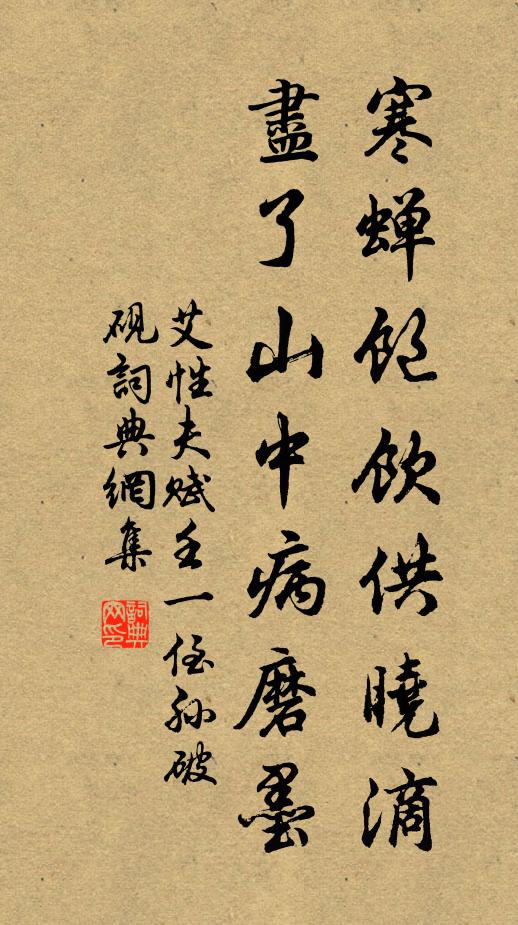 寒蝉飽飲供曉滴
盡了山中病磨墨
艾性夫賦壬一侄孫破
硯詞典網集
詞典
网印